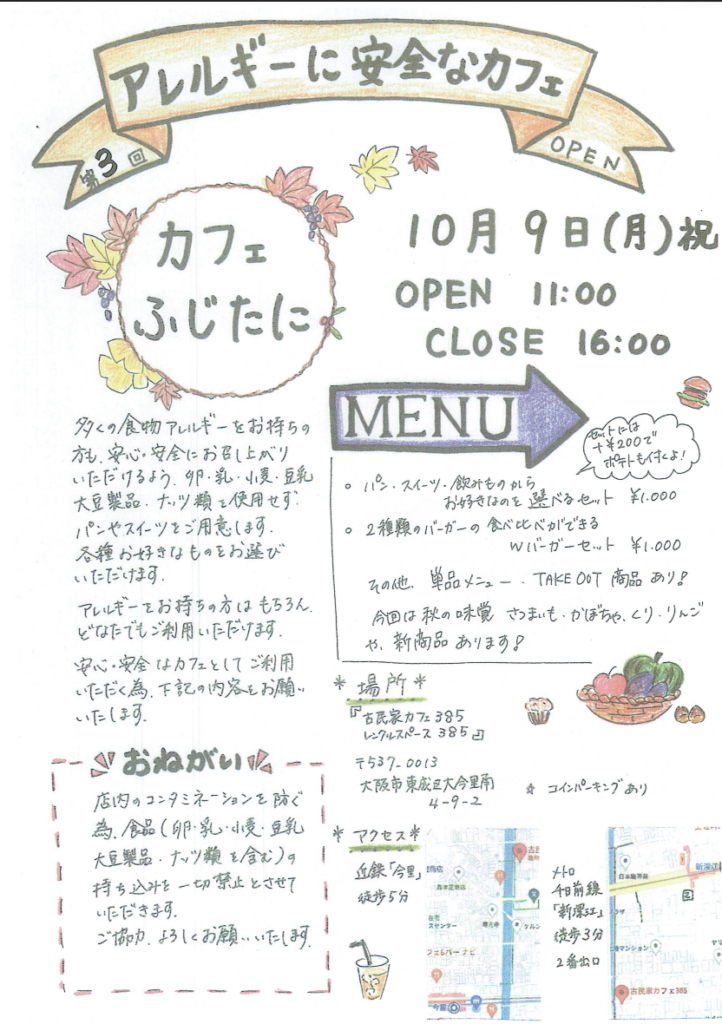 アレルギーに安全なカフェ
第3回
OPEN
カフェ
ふじたに
10月9日(月)祝
OPEN 11:00
CLOSE 16:00
多くの食物アレルギーをお持ちの
方も、安心・安全にお召し上がり
いただけるよう、卵・乳・小麦・豆乳
大豆製品・ナッツ類を使用せず
パンやスイーツをご用意します。
各種お好きなものをお選び
いただけます。
アレルギーをお持ちの方はもちろん、
どなたでもご利用いただけます。
安心・安全なカフェとしてご利用
いただく為、下記の内容をお願い
いたします。
おねがい
店内のコンタミネーションを防ぐ
為、食品(卵・乳・小麦・豆乳
大豆製品・ナッツ類を含む)の
持ち込みを一切禁止とさせて
いただきます。
ご協力、よろしくお願いいたします。
MENU
セットには
+¥200で
ポテトも付くよ!
○ パン・スイーツ・飲みものから
お好きなのを選べるセット ¥1.000
○ 2種類のバーガーの食べ比べができる
Wバーガーセット ¥1.000
その他、単品メニュー・TAKE OUT 商品あり!
今回は秋の味覚 さつまいも・かぼちゃ・くり・りんご
や、新商品あります!
* 場所 *
『古民家カフェ385
レンタルスペース 385』
〒537-0013
大阪市東成区大今里南
4-9-2
☆ コインパーキングあり
* アクセス *
近鉄「今里」
徒歩5分
メトロ
千日前線
「新深江」
徒歩3分
2番出口
森本正商店
フェ&バー ナビ
今里
日本酪農器
新深江
マンション
古民家カフェ385